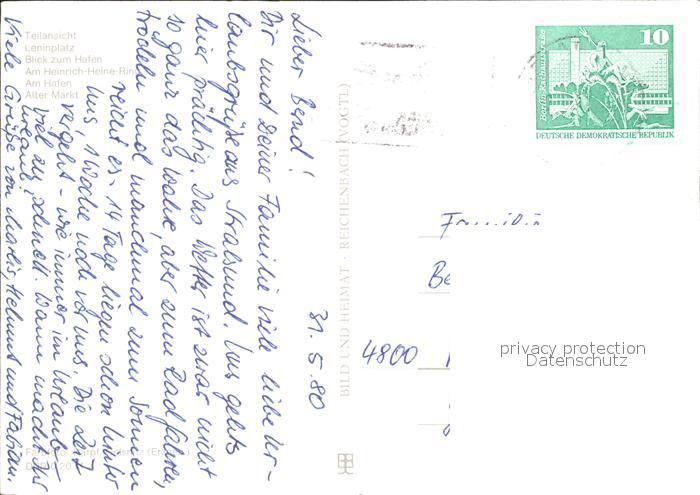 Teilansicht
Leninplatz
Blick zum Hafen
Am Heinrich-Heine-Ring
Am Hafen
Alter Markt
Lieber Bernd!
Dir und Deiner Familie viele liebe Ur-
laubsgrüße aus Stralsund. Uns gehts
hier prächtig. Das Wetter ist zwar nicht
so ganz das Wahre, aber zum Radfahren,
trödeln und manchmal zum Sonnen
reicht es. 14 Tage liegen schon hinter
uns, 1 Woche noch vor uns. Die Zeit
vergeht - wie immer im Urlaub -
viel zu schnell. Wann macht Ihr
Urlaub?
Viele Grüße von Helmut und Fabian.
31.5.80
BILD UND HEIMAT · REICHENBACH (VOGTL)
10
Berlin, Rathausstraße
DEUTSCHE DEMOKRATISCHE REPUBLIK
Be
4800
privacy protection
Datenschutz